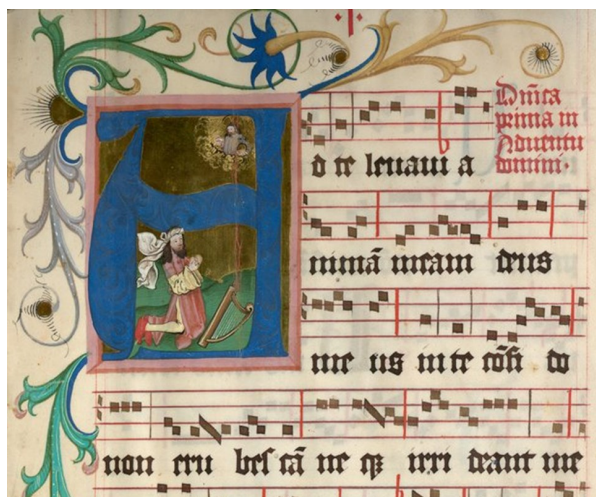 A
Dn̄ica
prima in
Aduentu
domini.
d te leuaui a
nimā meam deus
me us in te cōfi do
non eru bes cā ne qꝫ irri deant me